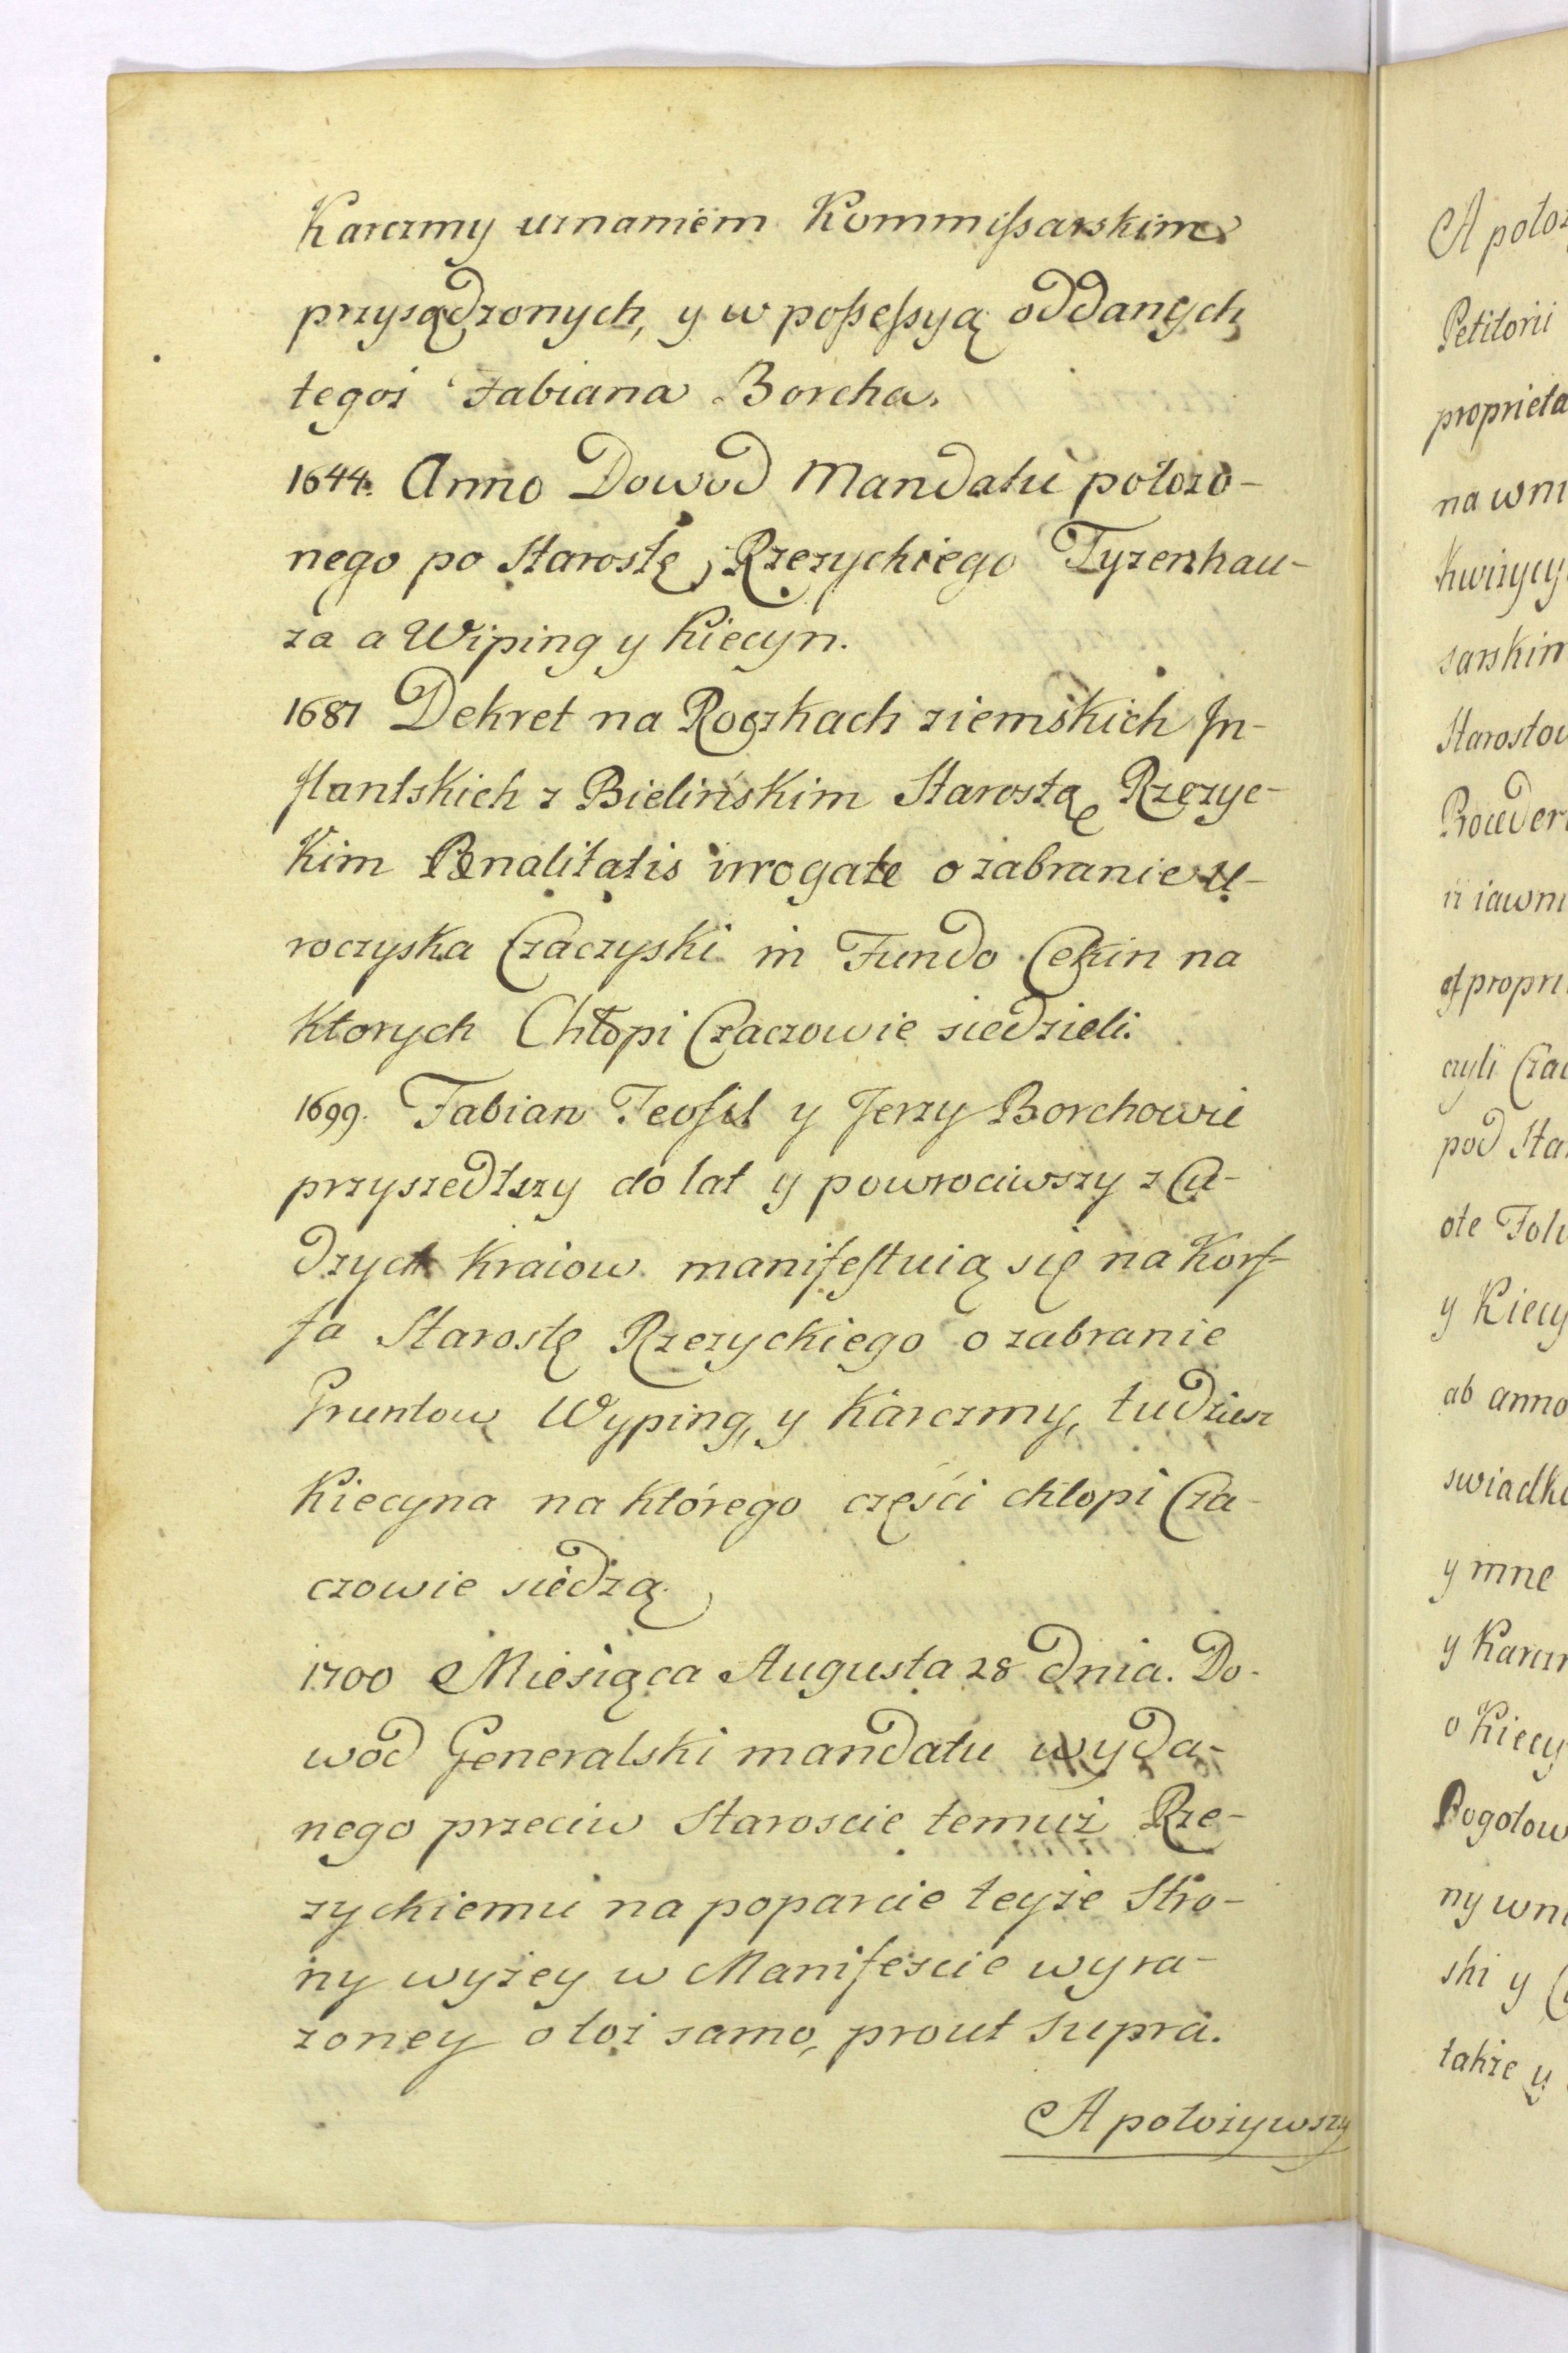 Karczmy uznaniem Kommissarskim
przysądzonych, y w possessyą oddanych
tegoż Fabiana Borcha.
1644. Anno Dowod Mandatu położo-
nego po Starostę Rzezyckiego Tyzenhau-
za a Wiping y Kiecyn.
1687 Dekret na Roczkach ziemskich In-
flantskich z Bielińskim Starostą Rzezyc-
kim Pœnalitatis irrogatæ o zabranie U-
roczyska Czaczyski in Fundo Cekin na
ktorych Chłopi Czaczowie siedzieli.
1699. Fabian Teofil y Jerzy Borchowie
przyszedłszy do lat y powrociwszy z Cu-
dzych kraiow manifestuią się na Korf-
fa Starostę Rzezyckiego o zabranie
Gruntow Wyping, y Karczmy, tudziesz
Kiecyna na którego części chłopi Cza-
czowie siedzą.
1700 Miesiąca Augusta 28 dnia. Do-
wod Generalski mandatu wyda-
nego przeciw Staroscie temuż Rze-
zyckiemu na poparcie teyże Stro-
ny wyżey w Manifescie wyra-
żoney o toż samo, prout supra.
A położywszy
A położ
Petitorii
proprieta
na wni
kwizycy
sarskim
Starostow
Proceder
iż iawni
et propri
czyli Czac
pod Sta
ote Folw
y Kiecy
ab anno
swiadk
y inne
y Karcz
o Kiecy
Pogotow
ny wni
ski y
także y